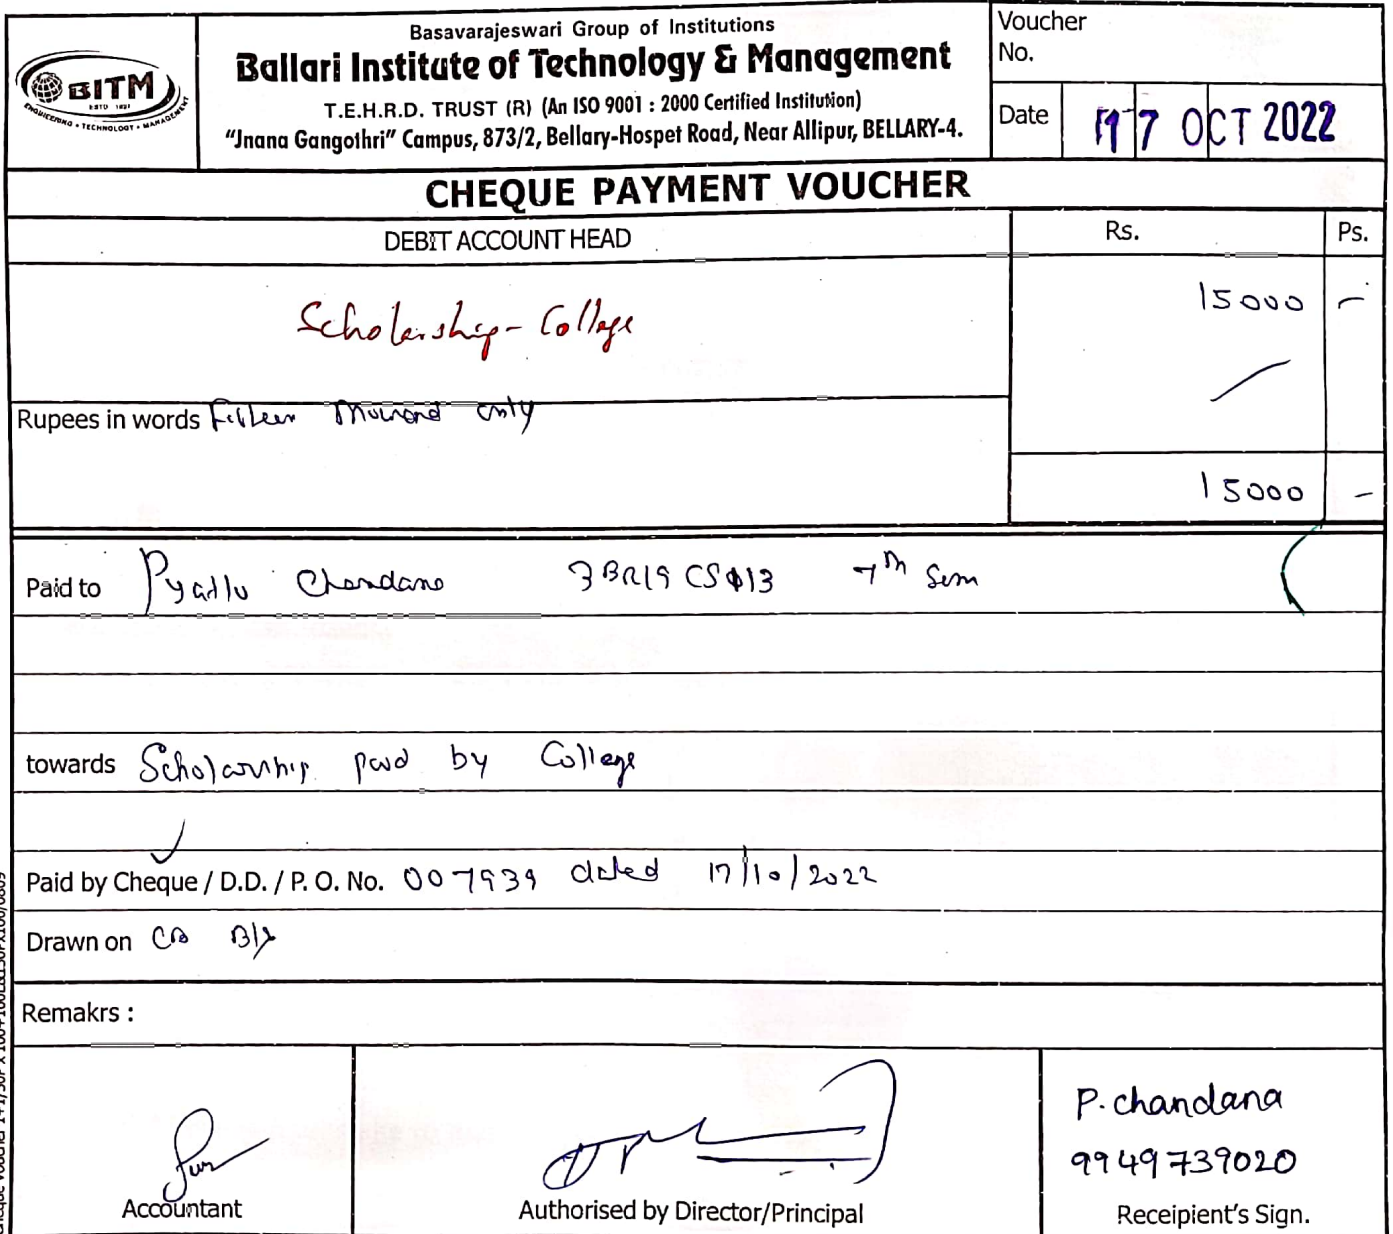 BITM
ESTD 1997
ENGINEERING • TECHNOLOGY • MANAGEMENT
Basavarajeswari Group of Institutions
Ballari Institute of Technology & Management
T.E.H.R.D. TRUST (R) (An ISO 9001 : 2000 Certified Institution)
"Jnana Gangothri" Campus, 873/2, Bellary-Hospet Road, Near Allipur, BELLARY-4.
Voucher
No.
Date 17 OCT 2022
CHEQUE PAYMENT VOUCHER
DEBIT ACCOUNT HEAD Rs. Ps.
Scholarship - College 15000 -
Rupees in words Fifteen Thousand only
15000 -
Paid to Pyatlu Chandana 3BR19CS113 7th Sem
towards Scholarship paid by College
Paid by Cheque / D.D. / P. O. No. 007939 dated 17/10/2022
Drawn on CB
Remakrs :
Accountant
Authorised by Director/Principal
P. chandana
9949739020
Receipient's Sign.